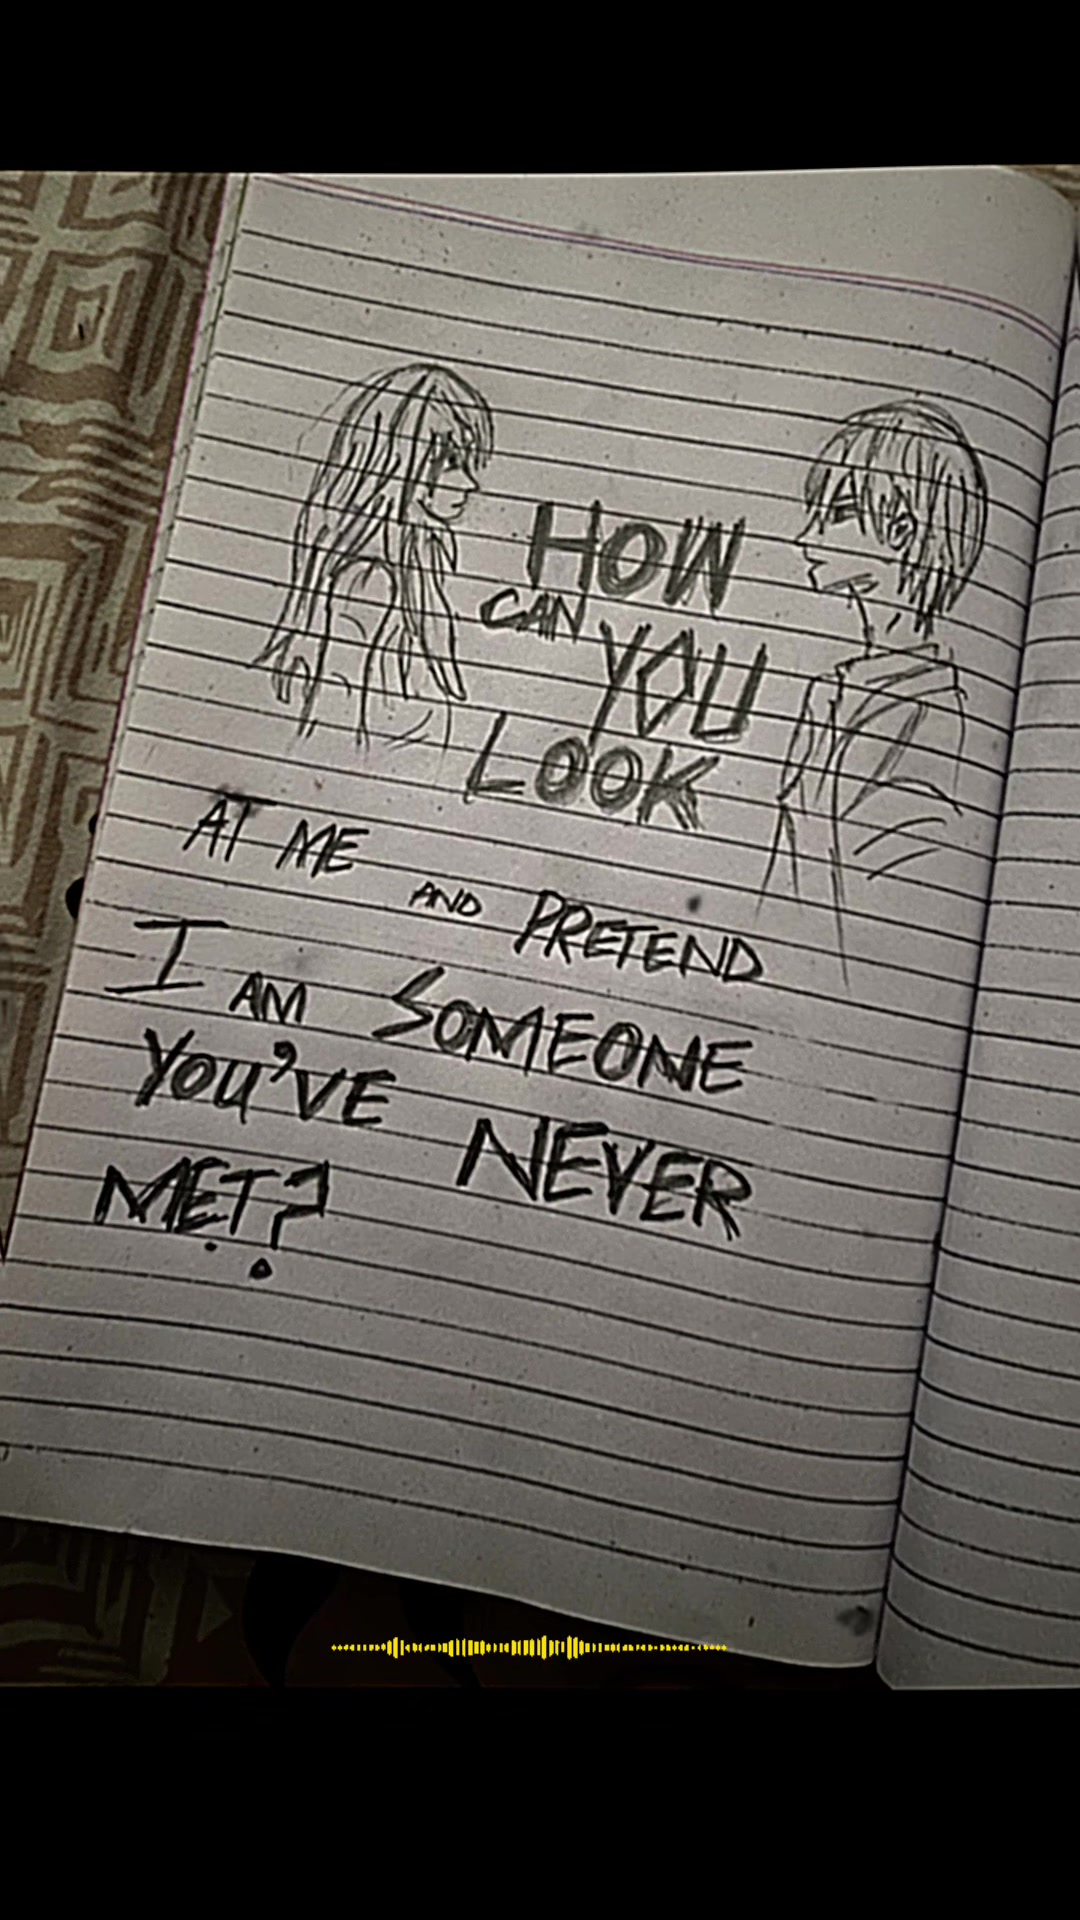 HOW
CAN YOU
LOOK
AT ME
AND PRETEND
I AM SOMEONE
YOU'VE NEVER
MET?